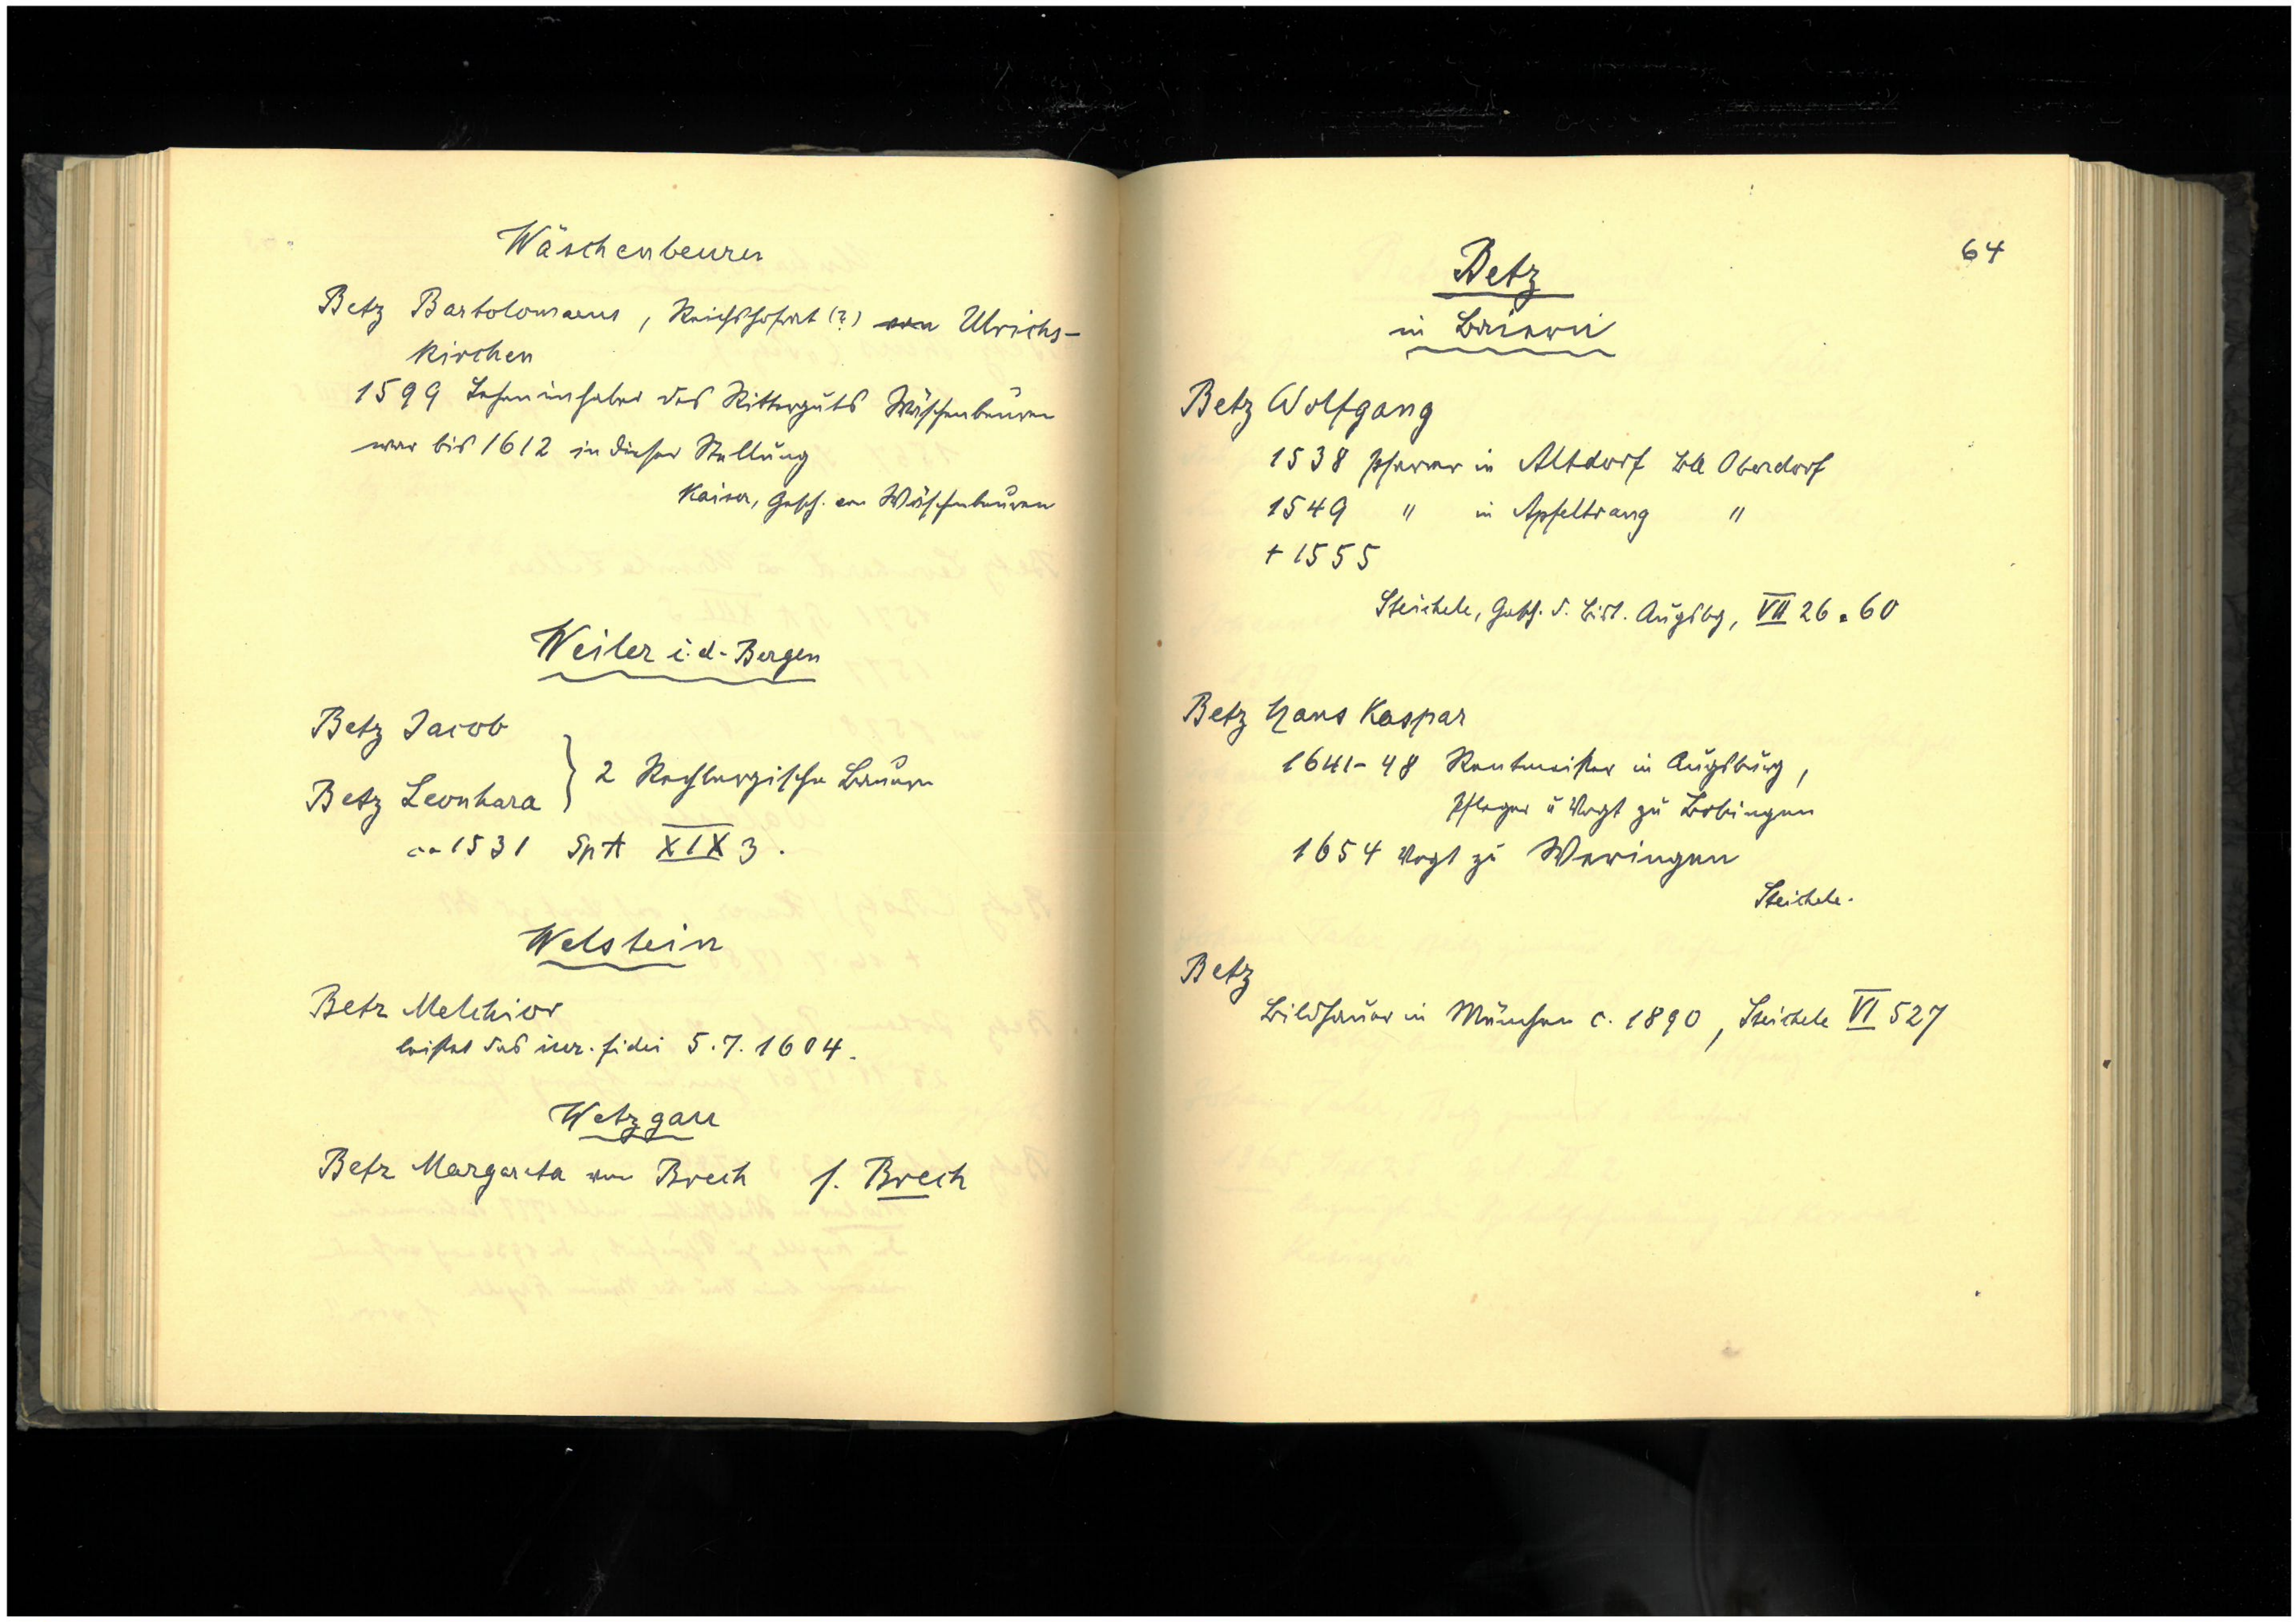 Wäschenbeuren
Betz Bartolomaeus, Reichshofrat (?) von Ulrichs-
kirchen
1599 Leheninhaber des Ritterguts Wäschenbeuren
war bis 1612 in dieser Stellung
Kaiser, Gesch. von Wäschenbeuren
Weiler i. d. Bergen
Betz Jacob
Betz Leonhard } 2 Rechbergische Bauern
ca 1531 SpA XIX 3.
Welstein
Betz Melchior
leistet das iur. fidei 5.7.1604.
Wetzgau
Betz Margareta von Brech s. Brech
64
Betz
in Baiern
Betz Wolfgang
1538 Pfarrer in Altdorf BA Oberdorf
1549 " in Apfeltrang "
+ 1555
Steichele, Gesch. d. Bist. Augsbg, VII 26 . 60
Betz Hans Kaspar
1641-48 Rentmeister in Augsburg,
Pfleger u Vogt zu Bobingen
1654 Vogt zu Weringen
Steichele.
Betz
Bildhauer in München c. 1890, Steichele VI 527